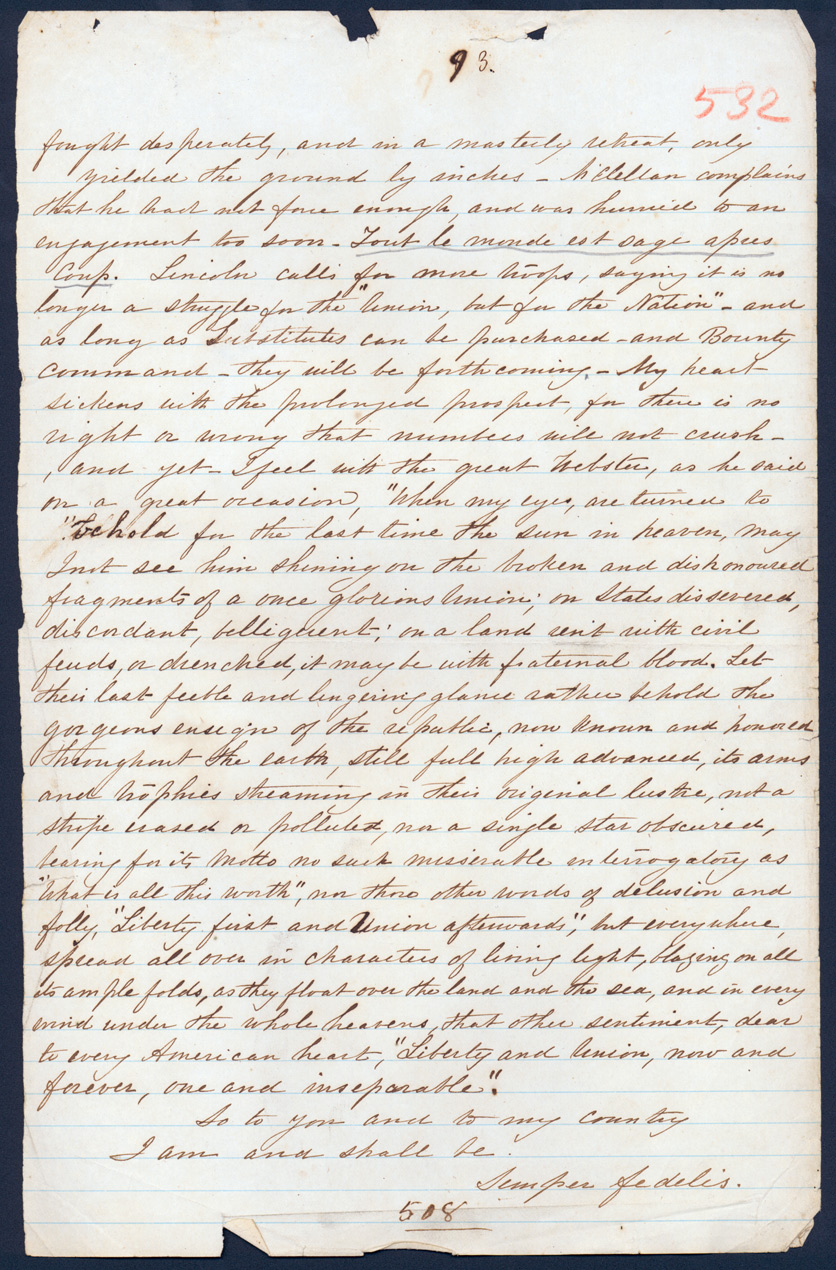 93.
532
fought desperately, and in a masterly retreat, only
yielded the ground by inches - McClellan complains
that he had not force enough, and was hurried to an
engagement too soon - Tout le monde est sage apres
Coup. Lincoln calls for more troops, saying it is no
longer a struggle for the "Union, but for the Nation" - and
as long as Substitutes can be purchased - and Bounty
command - they will be forthcoming - My heart
sickens with the prolonged prospect, for there is no
right or wrong that numbers will not crush -
, and yet - I feel with the great Webster, as he said
on a great occasion, "When my eyes, are turned to
"behold for the last time the sun in heaven, may
I not see him shining on the broken and dishonoured
fragments of a once glorious Union; on States dissevered,
discordant, belligerent; on a land rent with civil
feuds, or drenched, it may be with fraternal blood. Let
their last feeble and lingering glance rather behold the
gorgeous ensign of the republic, now known and honored
throughout the earth, still full high advanced, its arms
and trophies streaming in their original lustre, not a
stripe erased or polluted, nor a single star obscured,
bearing for its Motto no such misserable interrogatory as
"What is all this worth", nor those other words of delusion and
folly, "Liberty first and Union afterwards", but everywhere,
spread all over in characters of living light, blazing on all
its ample folds, as they float over the land and the sea, and in every
wind under the whole heavens, that other sentiment, dear
to every American heart, "Liberty and Union, now and
forever, one and inseparable".
So to you and to my country
I am and shall be.
Semper fedelis.
508